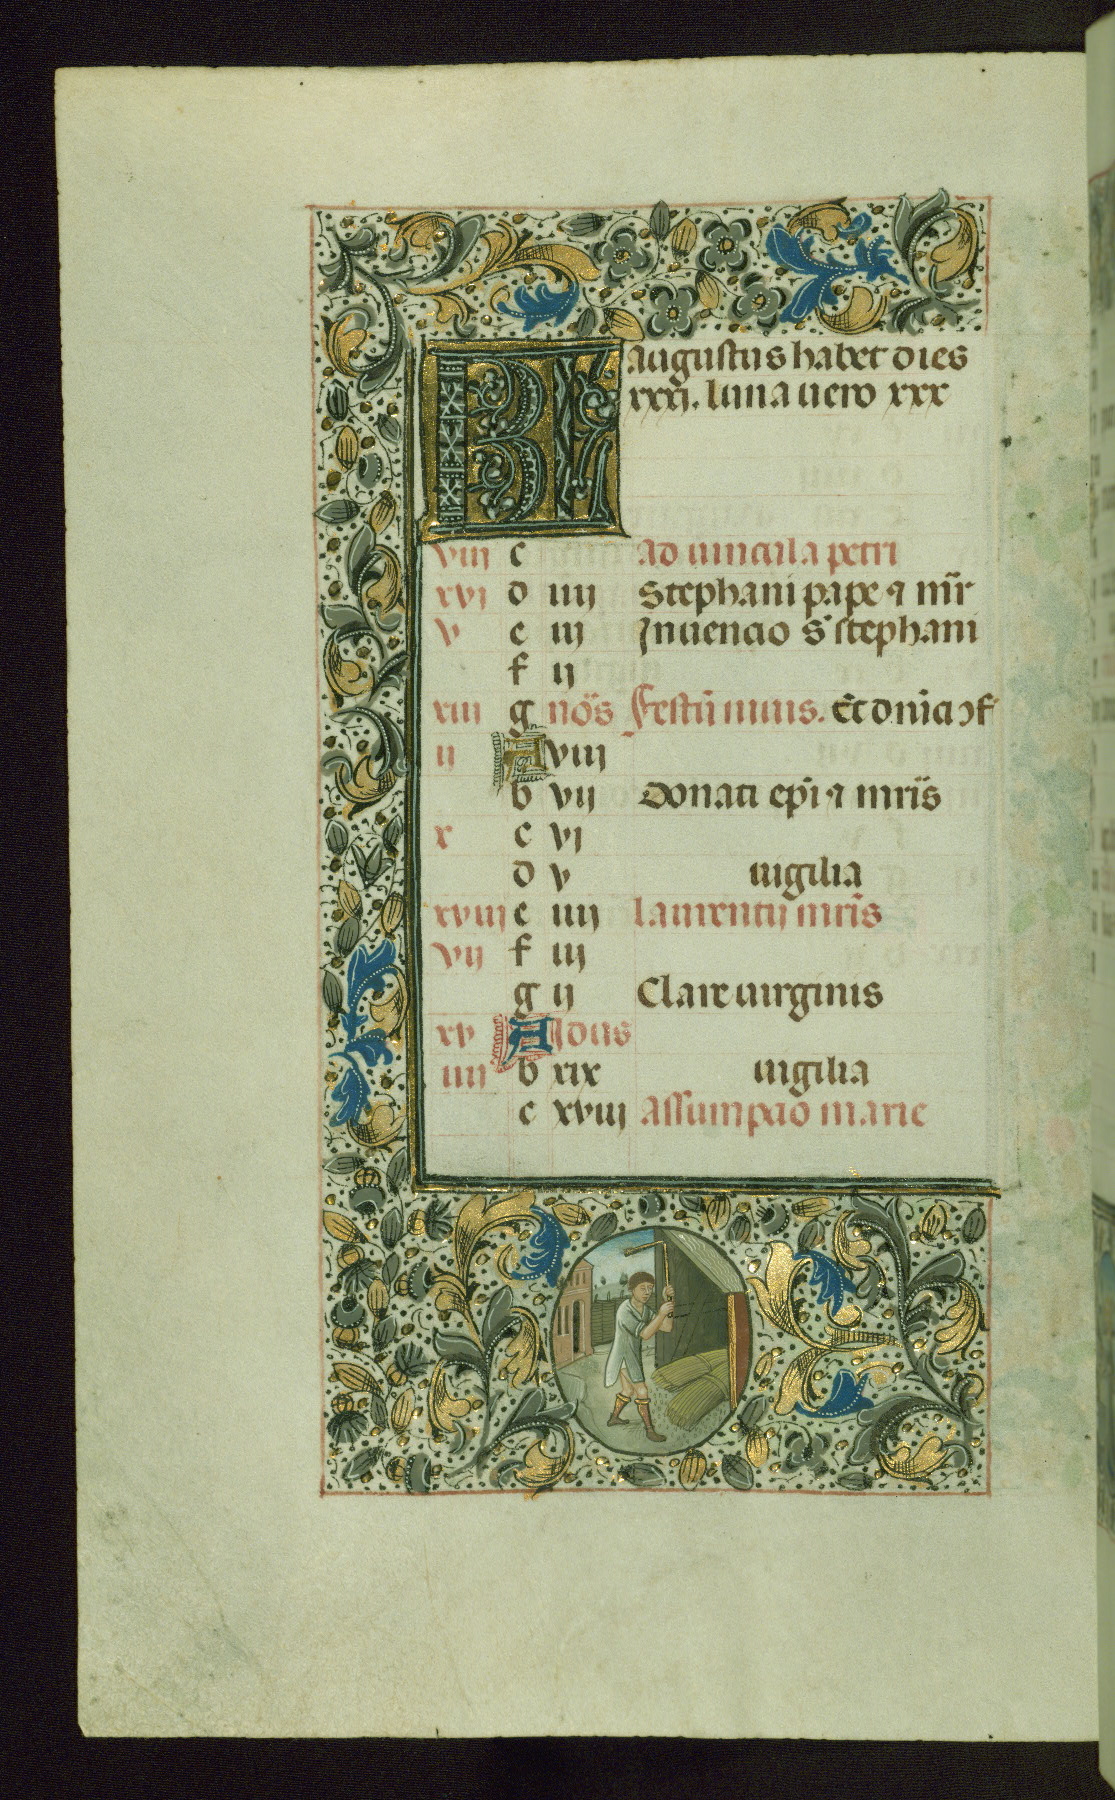 KL augustus habet dies
xxxi. luna uero xxx
viii c ad uincula petri
xvi d iiii Stephani pape ⁊ mr̄
v e iii Inuencio s' stephani
f ii
xiii g no͞s Festū niuis. Et dn̄ica ɔf
ii A viii
b vii Donati ep̄i ⁊ mr̄is
x c vi
d v uigilia
xviii e iiii laurentii mr̄is
vii f iii
g ii Clare uirginis
xv A Idus
iiii b xix uigilia
c xviii assumpcio marie